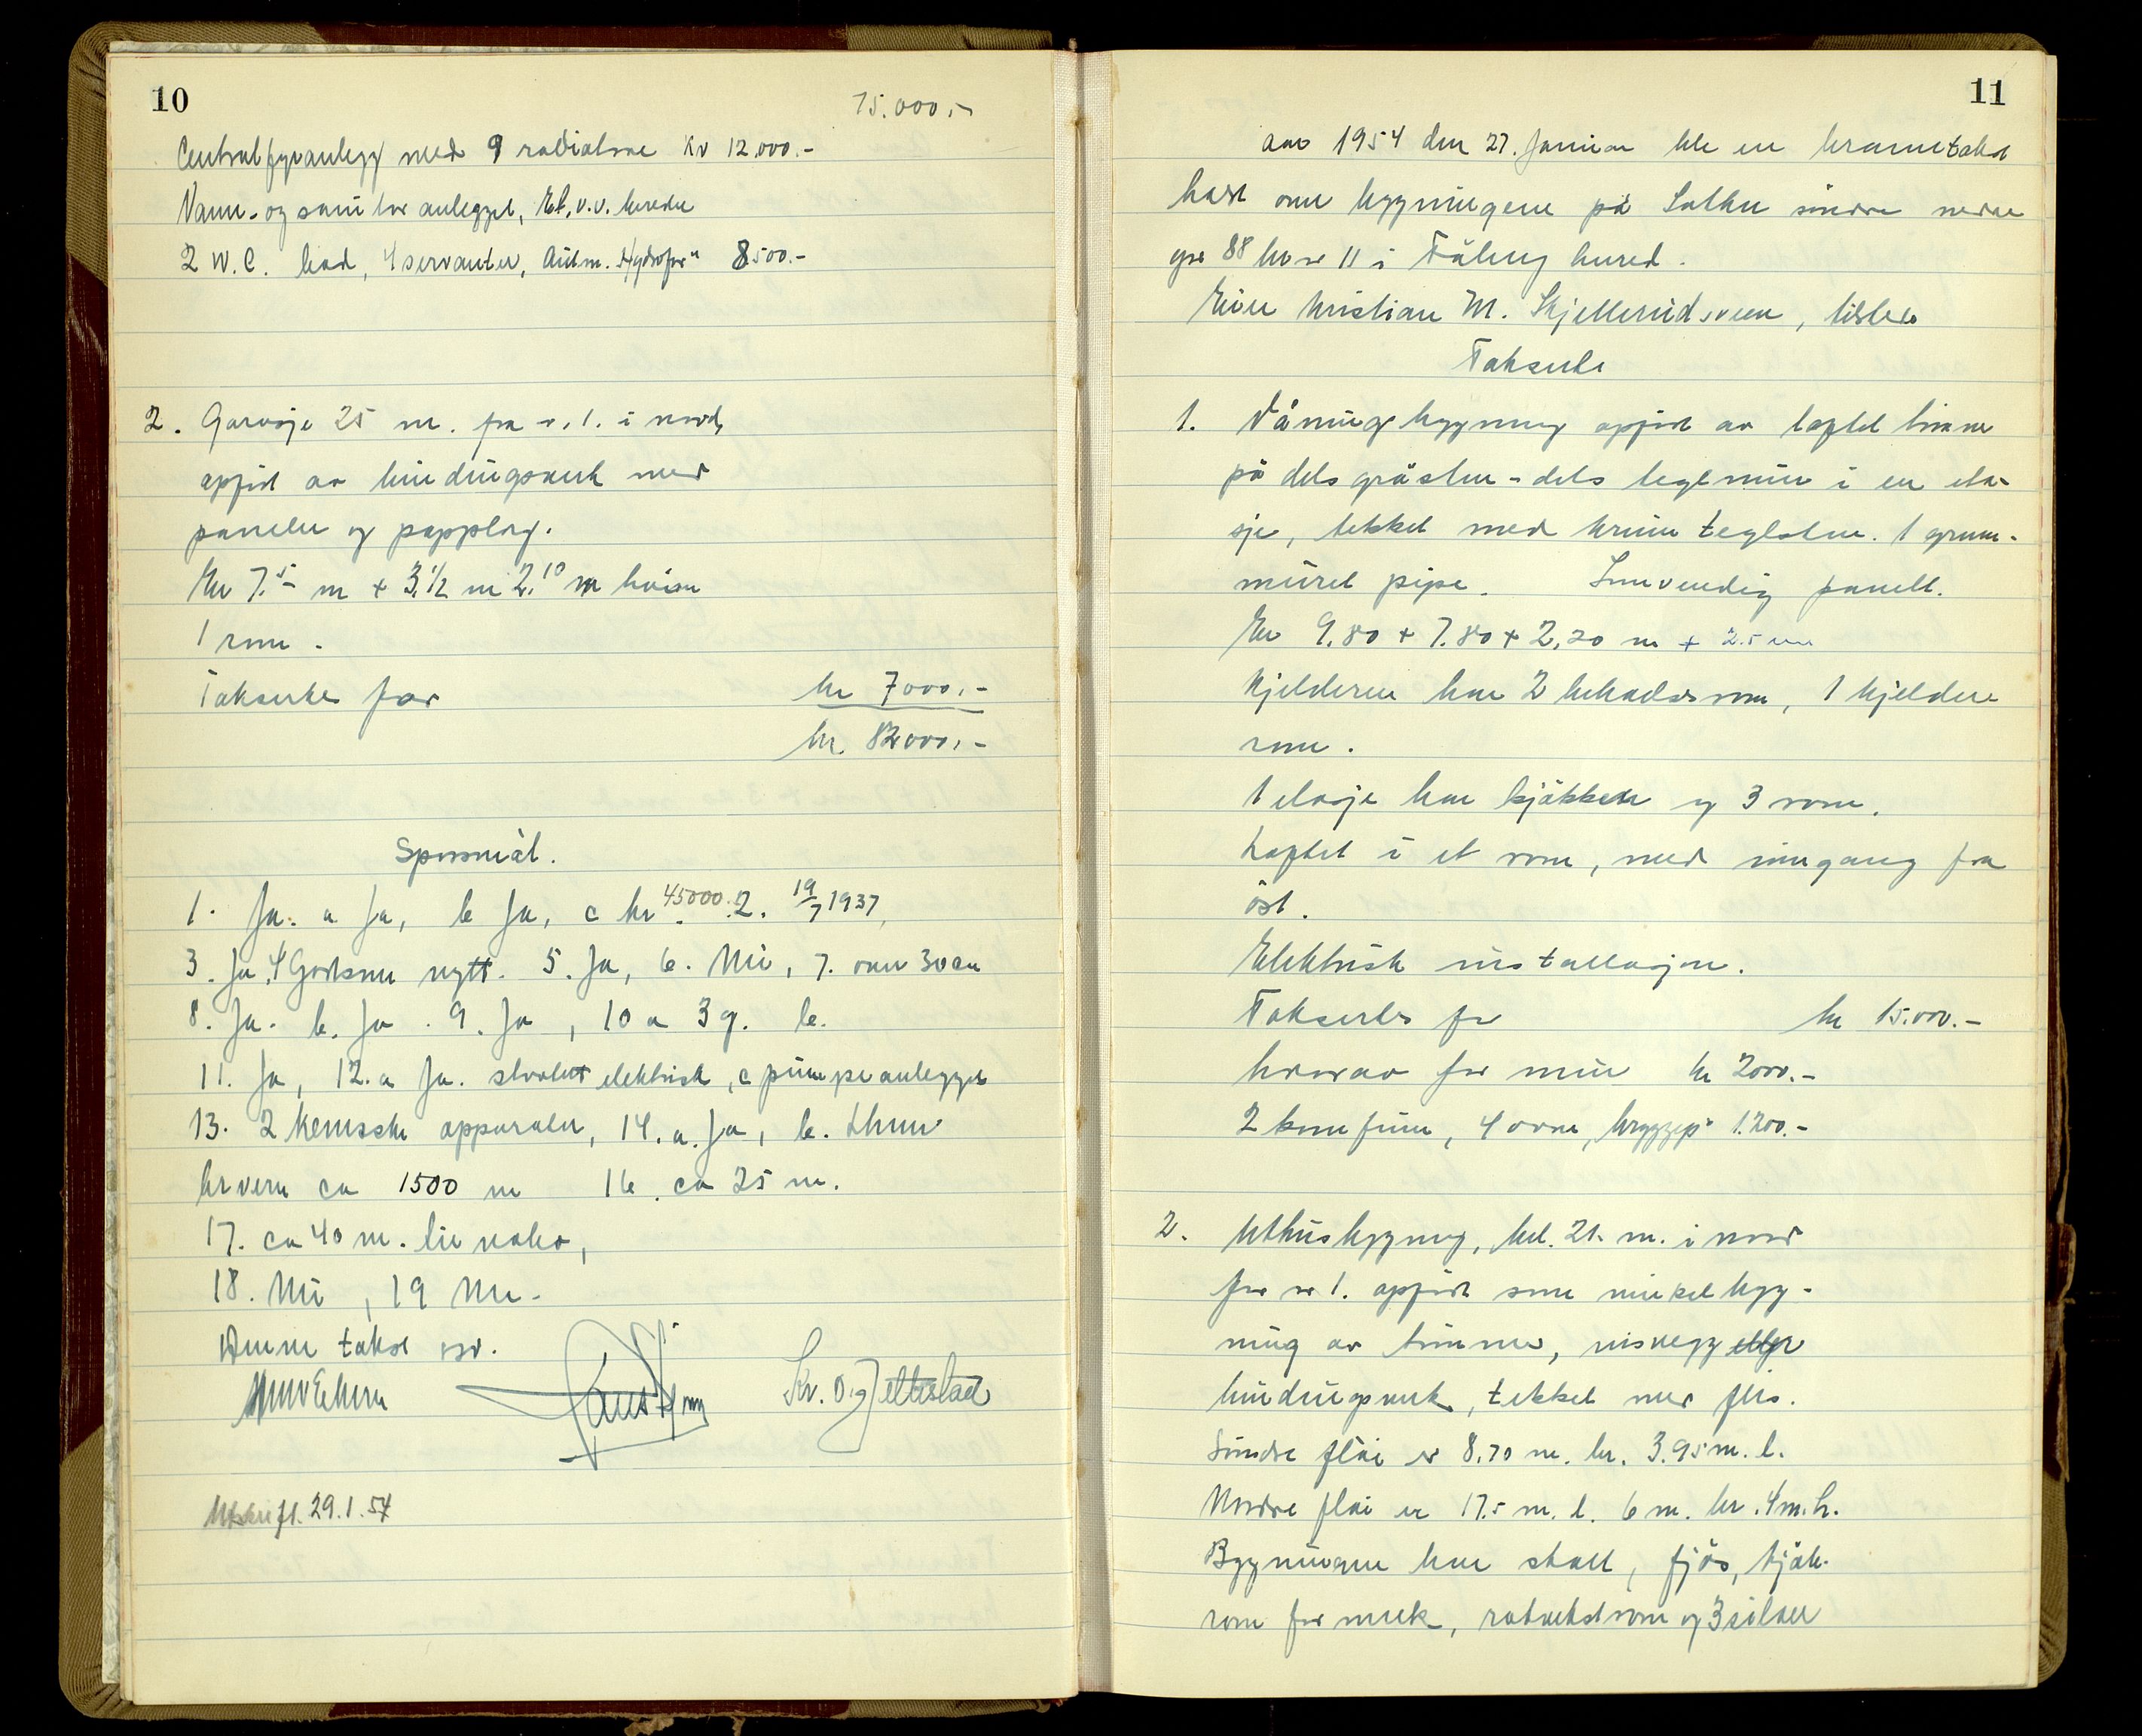 10
75.000,-
Centralfyranlegg med 9 radiatorer Kr 12.000.-
Vann- og sanitær anlegget, El. v.v. bereder
2 W.C. bad, 4 servanter, Autm. "Hydrofor" 8500.-
2. Garasje 25 m. fra nr. 1. i nord,
oppført av bindingsverk med
paneler og papplag.
Er 7.5 m + 3.½ m 2.10 m høien
1 rom.
Takseres for kr 7000,-
kr. 82000,-
Spørsmål.
1. Ja. a Ja, b Ja, c kr 45000. 2. 19/7 1937,
3. Ja, 4 Godkent nytt. 5. Ja, 6. Nei, 7. over 30 cm
8. Ja. b. Ja. 9. Ja, 10 a 3 g. b.
11. Ja, 12. a Ja. elektrisk, c pumpeanlegget
13. 2 kemiske apparater, 14. a. Ja, b.
brvern ca 1500 m 16. ca 25 m.
17. ca 40 m.
18. Nei, 19 Nei.
Denne takst osv.
Utskrift. 29.1.54
11
Aar 1954 den 27. Januar ble en brannetakst
holdt over bygningene på søndre nedre
gnr 88 bnr 11 i Fåberg herred.
Eier Kristian M. Skjellerudsveen,
Takserte
1. Våningsbygning oppført av laftet timmer
på dels gråsten - dels teglmur i en eta-
sje, tekket med krum teglsten. 1 grunn-
muret pipe. Innvendig panelt.
Er 9.80 + 7.80 + 2,20 m + 2.5 m
Kjelderen har 2 beboelsesrom, 1 kjelder
rom.
1 etasje har kjøkken og 3 rom.
Loftet i et rom, med inngang fra
øst.
Elektrisk installasjon.
Takseres for kr 15.000.-
hvorav for mur kr 2000.-
2 komfurer, 4 ovner, bryggep. 1.200.-
2. Uthusbygning, bel. 21. m. i nord
for nr 1. oppført som vinkelbyg-
ning av timmer,
bindingsverk, tekket med flis.
Søndre fløi er 8.70 m. br. 3.95 m. l.
Nordre fløi er 17.5 m. l. 6 m. br. 4 m. h.
Bygningene har stall, fjøs,
rom for melk, og 3 siloer